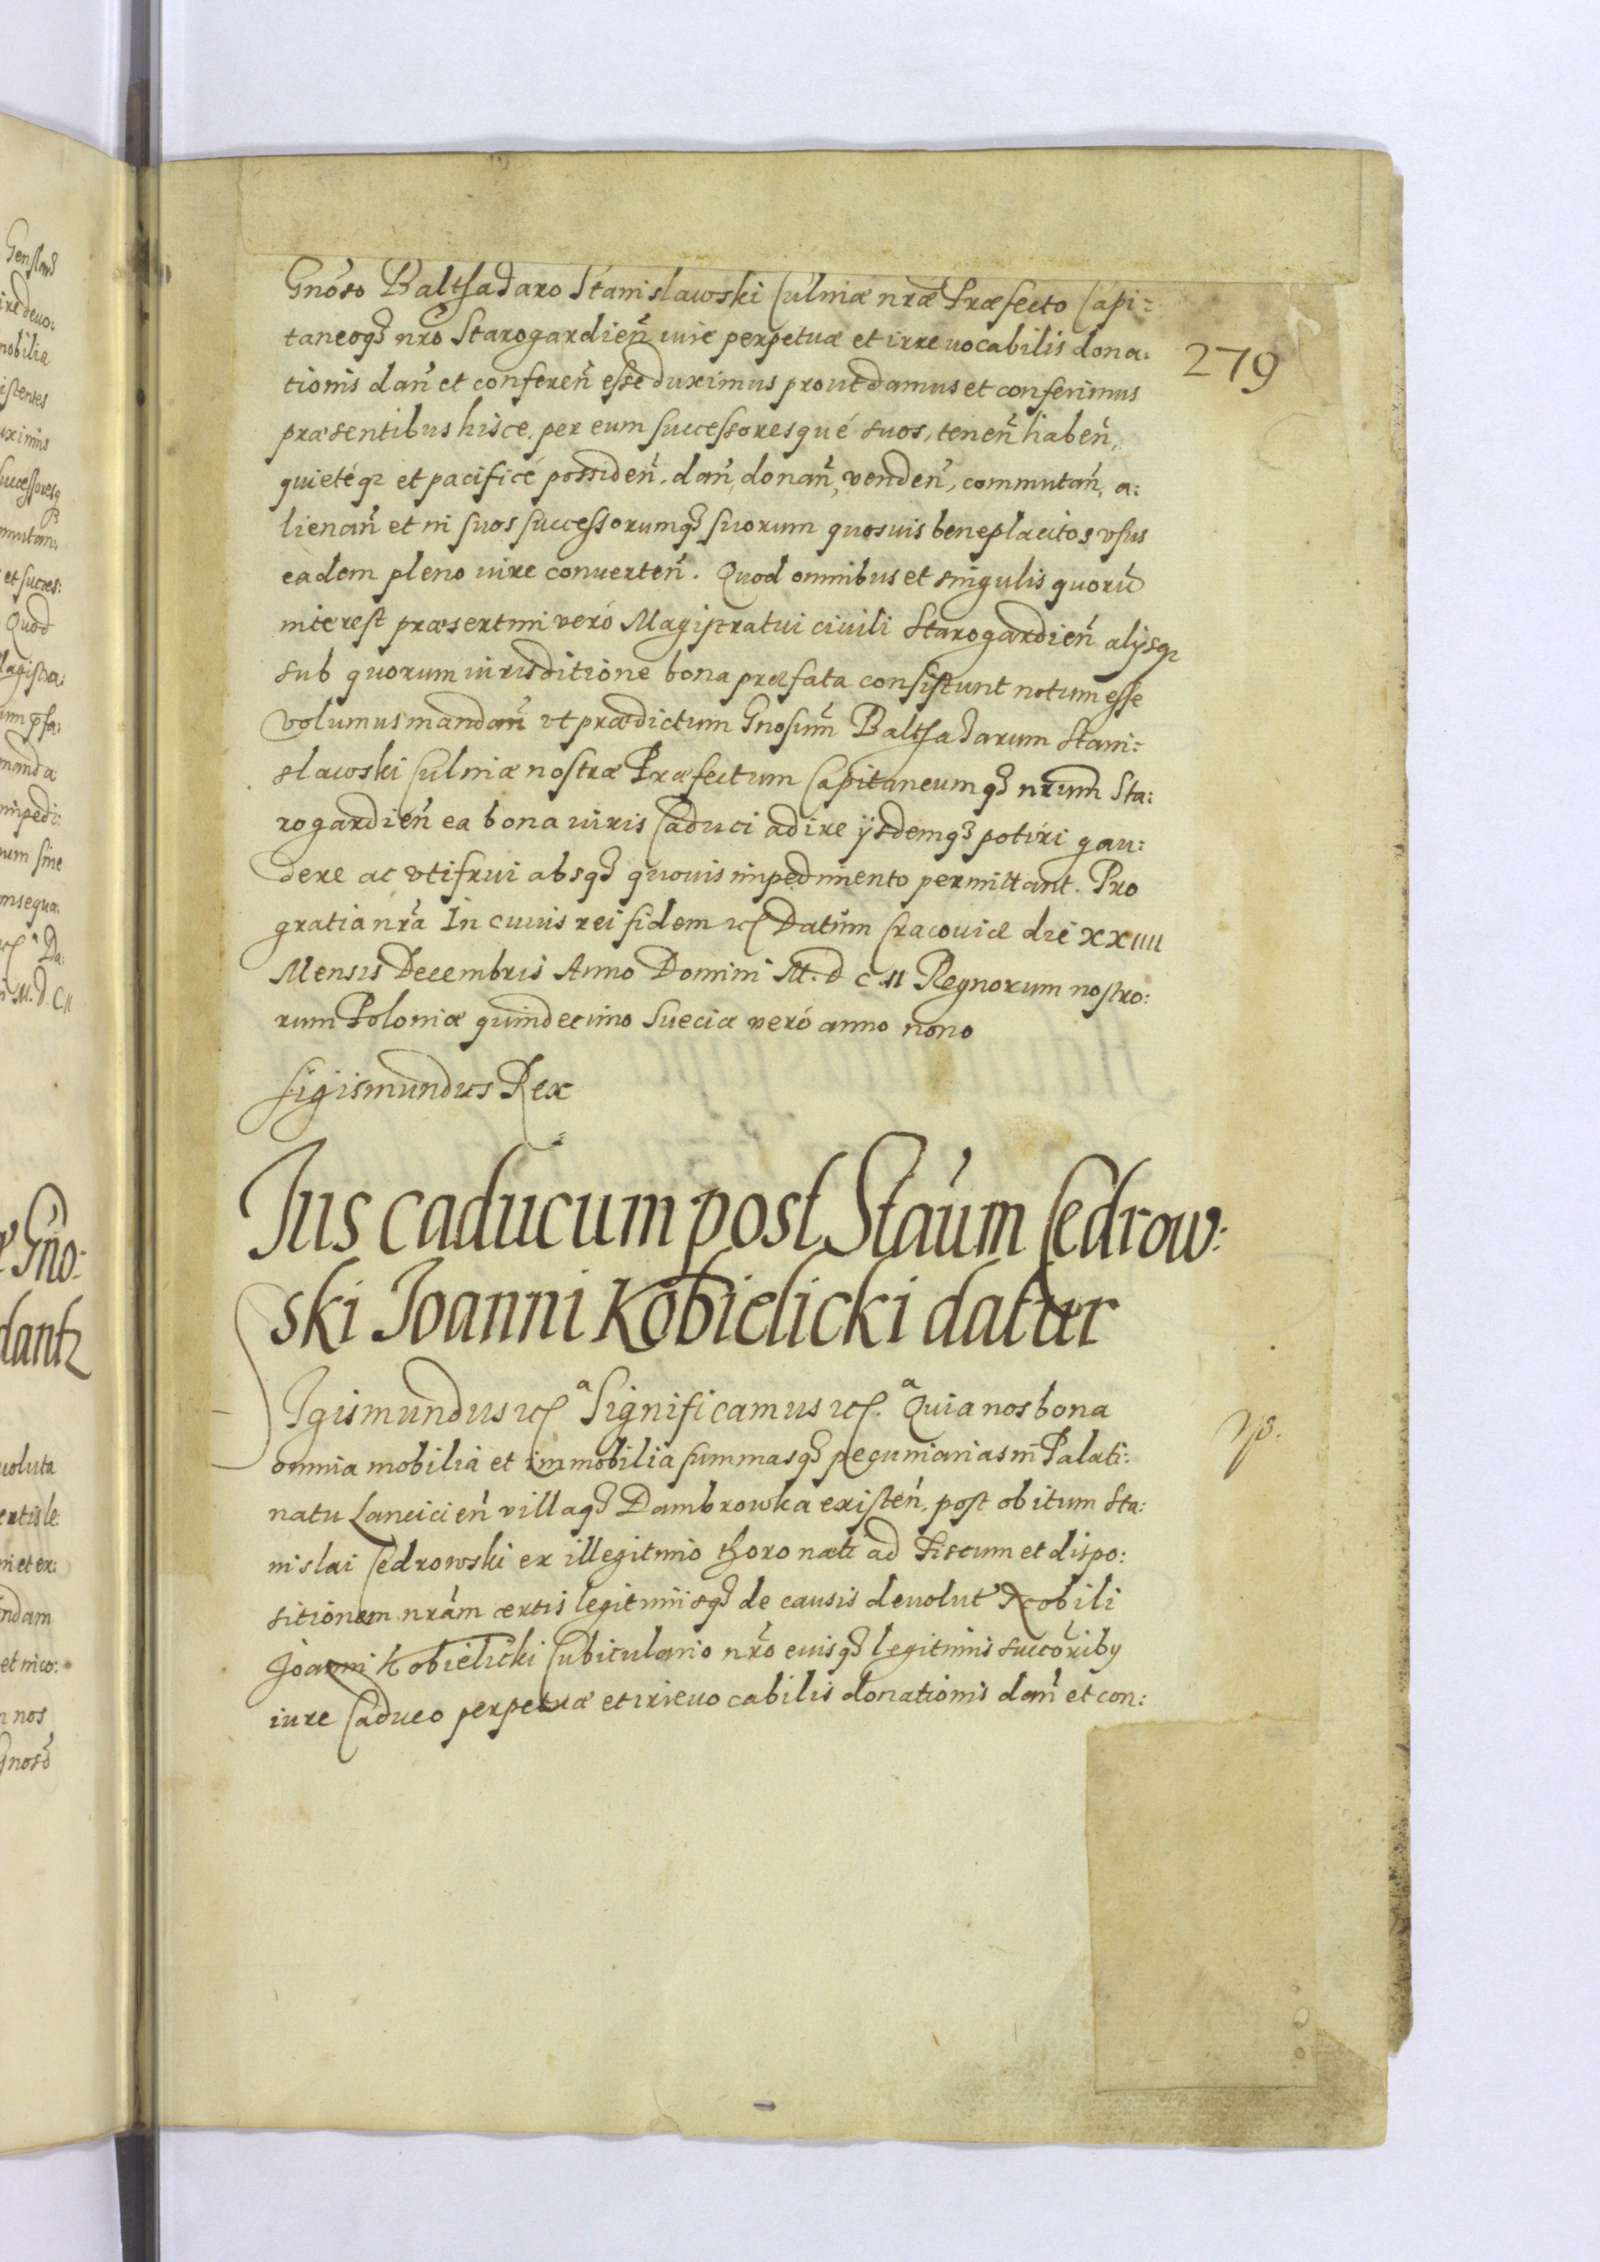 279
Gnoso Balthasaro Stanislawski Culinæ nræ Præfecto Capi=
taneoq3 nro Starogardień iure perpetuæ et irreuocabilis dona:
tionis dań et confereń esse duximus prout damus et conferimus
præsentibus hisce, per eum successoresqué suos, teneń habeń,
quietéq3 et pacificé possideń, dań, donań, vendeń, commutań, a:
lienań et in suos successorumq3 suorum quosuis beneplacitos vsus
eadem pleno iure conuerteń. Quod omnibus et singulis quorū
interest præsertim veró Magistratui ciuili Starogardień alijsq3
sub quorum iurisditione bona præfata consistunt notum esse
volumus mandań vt prædictum Gnosum Balthasarum Stani:
slawski Culinæ nostræ Præfectum Capitaneumq3 nrum Sta:
rogardień ea bona iuris Caduci adire ijsdemq3 potiri gau:
dere ac vtifrui absq3 quouis impedimento permittant. Pro
gratia nrá In cuius rei fidem etc Datum Cracouiæ die XXIIII
Mensis Decembris Anno Domini M.D C II Regnorum nostro:
rum Poloniæ quindecimo Sueciæ veró anno nono
Sigismundus Rex
Ius caducum post Staúm Cedrow:
ski Joanni Kobielicki datur
Sigismundus etc a Significamus etc. a Quia nos bona
omnia mobilia et immobilia summasq3 pecuniarias in Palati:
natu Lancicień villaq3 Dambrowka existeń, post obitum Sta:
nislai Cedrowski ex illegitimo thoro nati ad Fiscum et dispo:
sitionem nrám certis legitimisq3 de causis deuolut Nobili
Joanni Kobielicki Cubiculario nro eiusq3 legitimis succoriby
iure Caduco perpetuæ et irreuocabilis donationis dań et con: